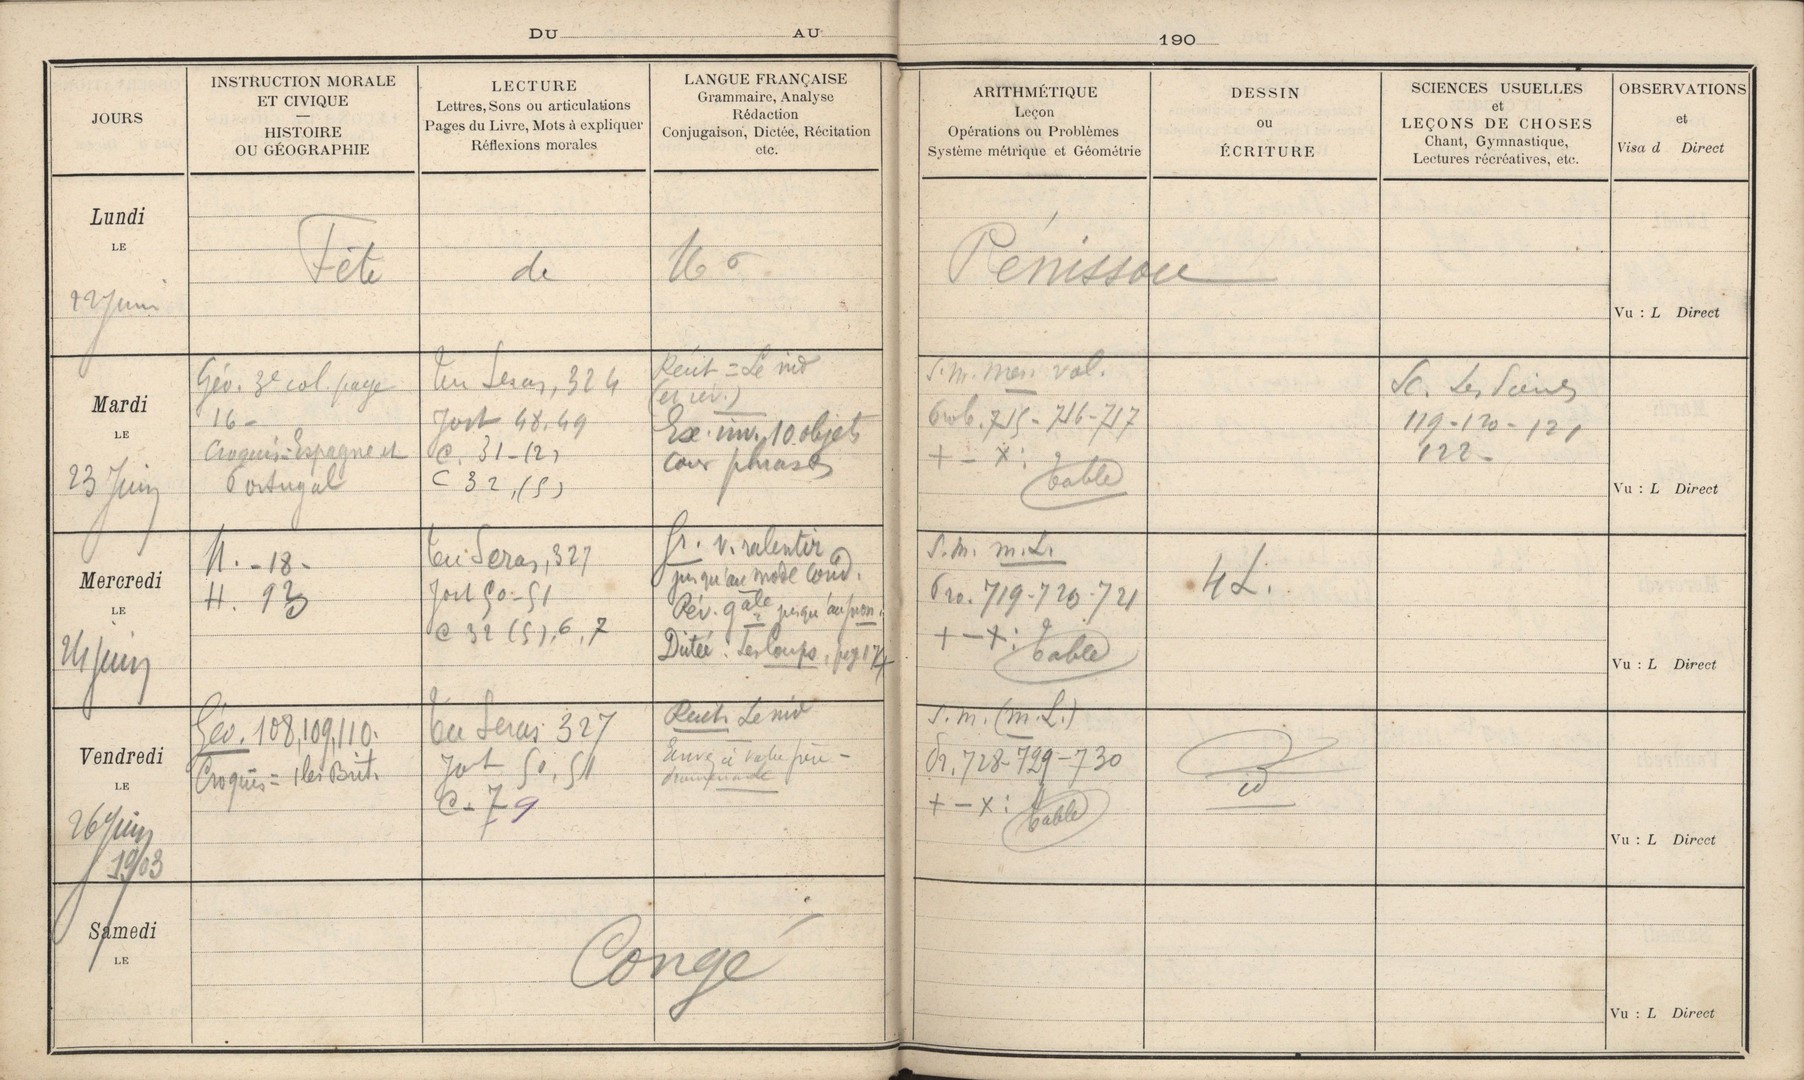 DU AU 190
JOURS
INSTRUCTION MORALE
ET CIVIQUE
—
HISTOIRE
OU GÉOGRAPHIE
LECTURE
Lettres, Sons ou articulations
Pages du Livre, Mots à expliquer
Réflexions morales
LANGUE FRANÇAISE
Grammaire, Analyse
Rédaction
Conjugaison, Dictée, Récitation
etc.
ARITHMÉTIQUE
Leçon
Opérations ou Problèmes
Système métrique et Géométrie
DESSIN
ou
ÉCRITURE
SCIENCES USUELLES
et
LEÇONS DE CHOSES
Chant, Gymnastique,
Lectures récréatives, etc.
OBSERVATIONS
et
Visa d Direct
Lundi
LE
22 Juin
Fête
de
Pénissou
Vu : L Direct
Mardi
LE
23 Juin
Géo. 3e col. page
16 -
Croquis = Espagne et
Portugal
Tu Seras, 324
Jost 48.49
C. 31-(2)
C 32,(5)
Récit = Le nid
Ex. inv. 10 objets
cour phrases
S.M. mes. vol.
Prob. 715 - 716 - 717
+ - × :
Table
Sc. Les
119 - 120 - 121
122 -
Vu : L Direct
Mercredi
LE
24 Juin
- 18 -
H. 93
Tu Seras, 327
Jost 50-51
C 32 (5), 6, 7
Gr. v. ralentir
jusqu'au mode cond.
Rév. gale jusqu'au pron.
Dictée : Les Loups, pag 174
S.M. m.L.
Pro. 719 - 720 - 721
+ - × :
Table
4 L.
Vu : L Direct
Vendredi
LE
26 Juin
1903
Géo. 108, 109, 110.
Croquis = Iles Brit.
Tu Seras 327
Jost 50, 51
C. 79
Récit. Le nid
à votre père -
promenade
S.M. (m.L.)
Pr. 728 - 729 - 730
+ - × :
Table
id
Vu : L Direct
Samedi
LE
Congé
Vu : L Direct